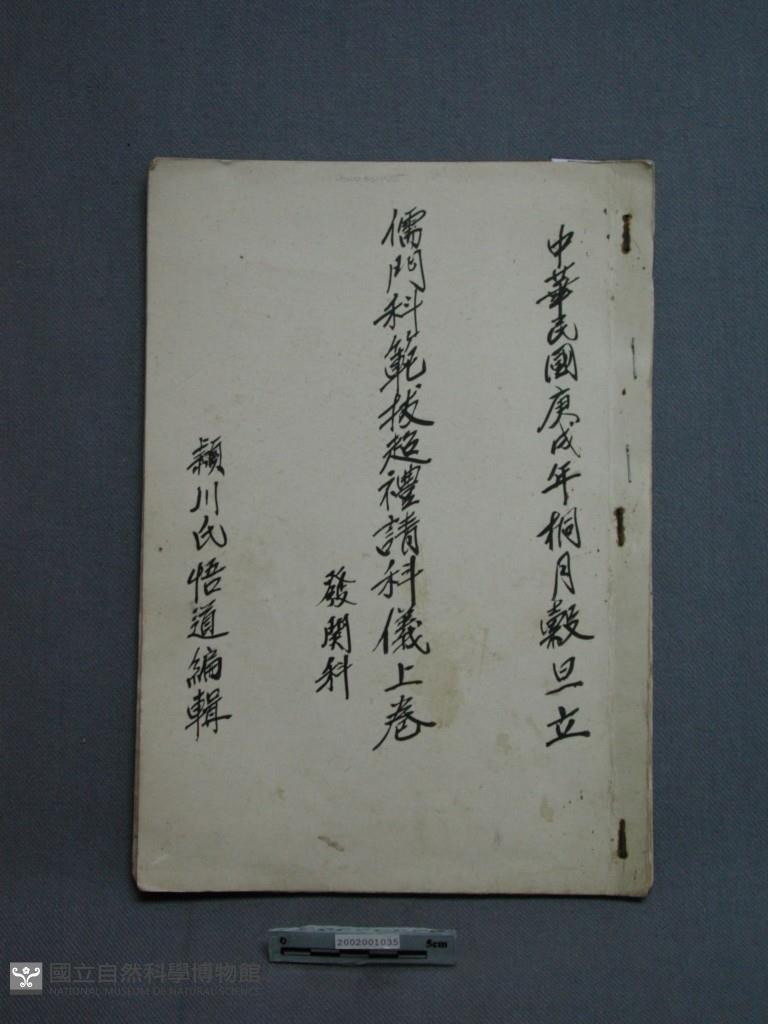 中華民國庚戍年桐月穀旦立
儒門科範拔超禮請科儀上卷
發関科
頴川氏悟道編輯
0
2002001035
5cm
國立自然科學博物館
NATIONAL MUSEUM OF NATURAL SCIENCE